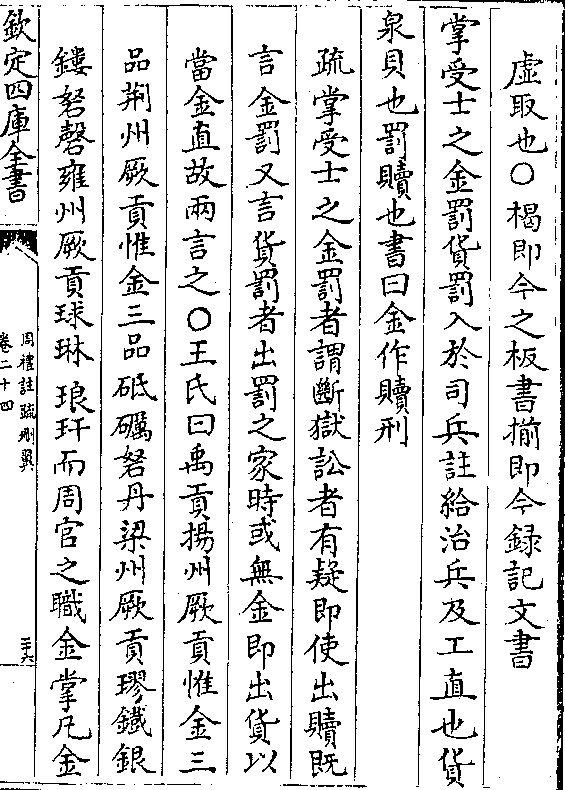 虚取也○楬即今之板書揃即今録記文書
掌受士之金罰貨罰入於司兵註給治兵及工直也貨
泉貝也罰贖也書曰金作贖刑
疏掌受士之金罰者謂斷獄訟者有疑即使出贖既
言金罰又言貨罰者出罰之家時或無金即出貨以
當金直故兩言之○王氏曰禹貢揚州厥貢惟金三
品荆州厥貢惟金三品砥礪砮丹梁州厥貢璆鐵銀
鏤砮磬雍州厥貢球琳琅玕而周官之職金掌凡金
欽定四庫全書
周禮註疏刪翼
卷二十四
三十六